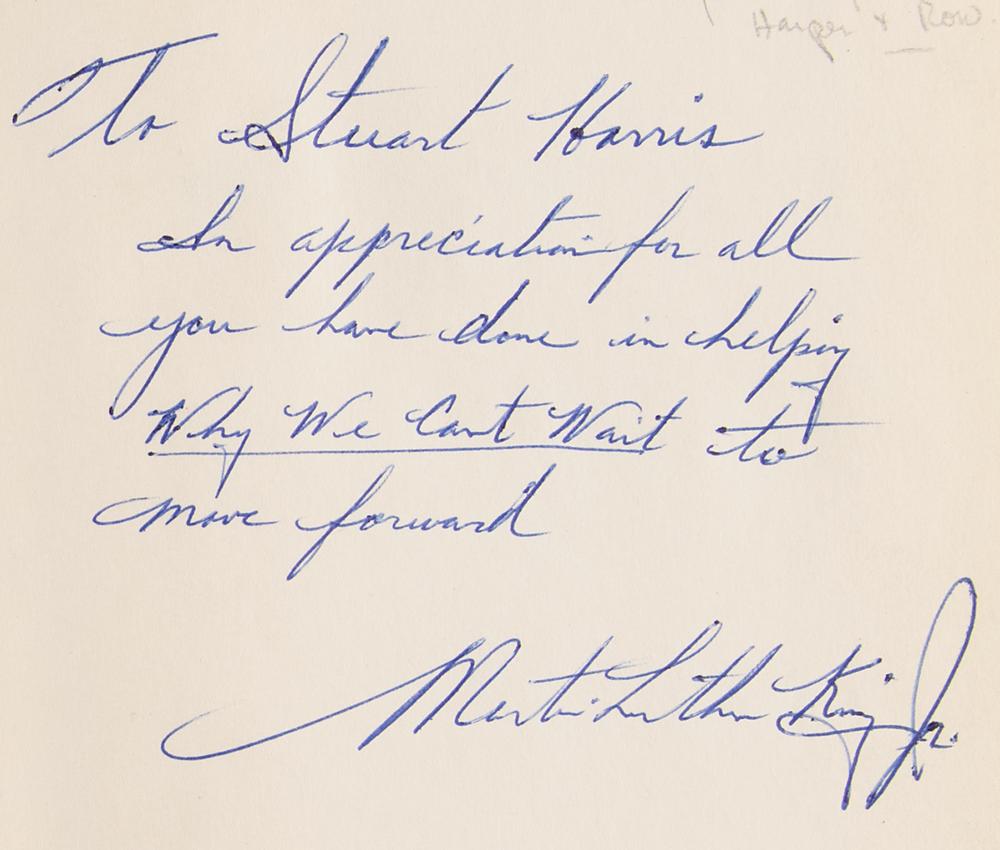 Harper & Row
To Stuart Harris
In appreciation for all
you have done in helping
Why We Cant Wait to
move forward
Martin Luther King Jr.